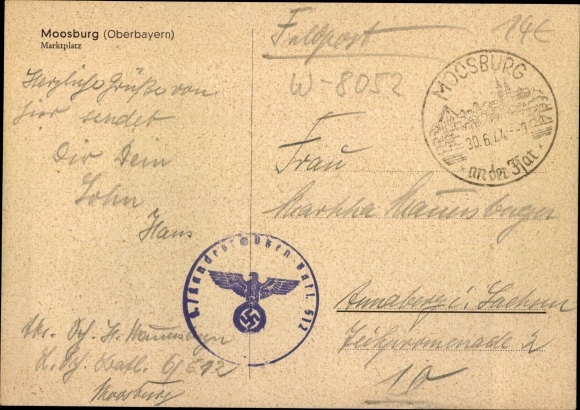 Moosburg (Oberbayern)
Marktplatz
Feldpost
14€
W-8052
MOOSBURG
30.6.4
an der Isar
Herzliche Grüße von
hier sendet
Dir Dein
Sohn
Hans
Frau
Martha
Annaberg i. Sachsen
Teichpromenade 2
10
Landesschützen-Batl. 512
Abs. Sch. H.
Batl. 6/512
Moosburg